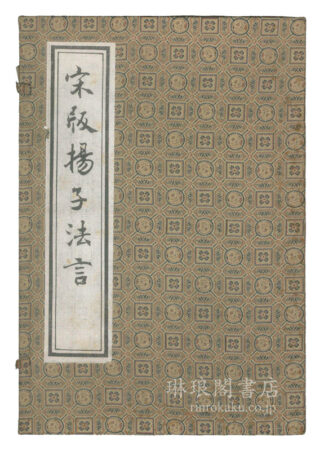 宋版揚子法言
琳琅閣書店
rinrokaku.co.jp